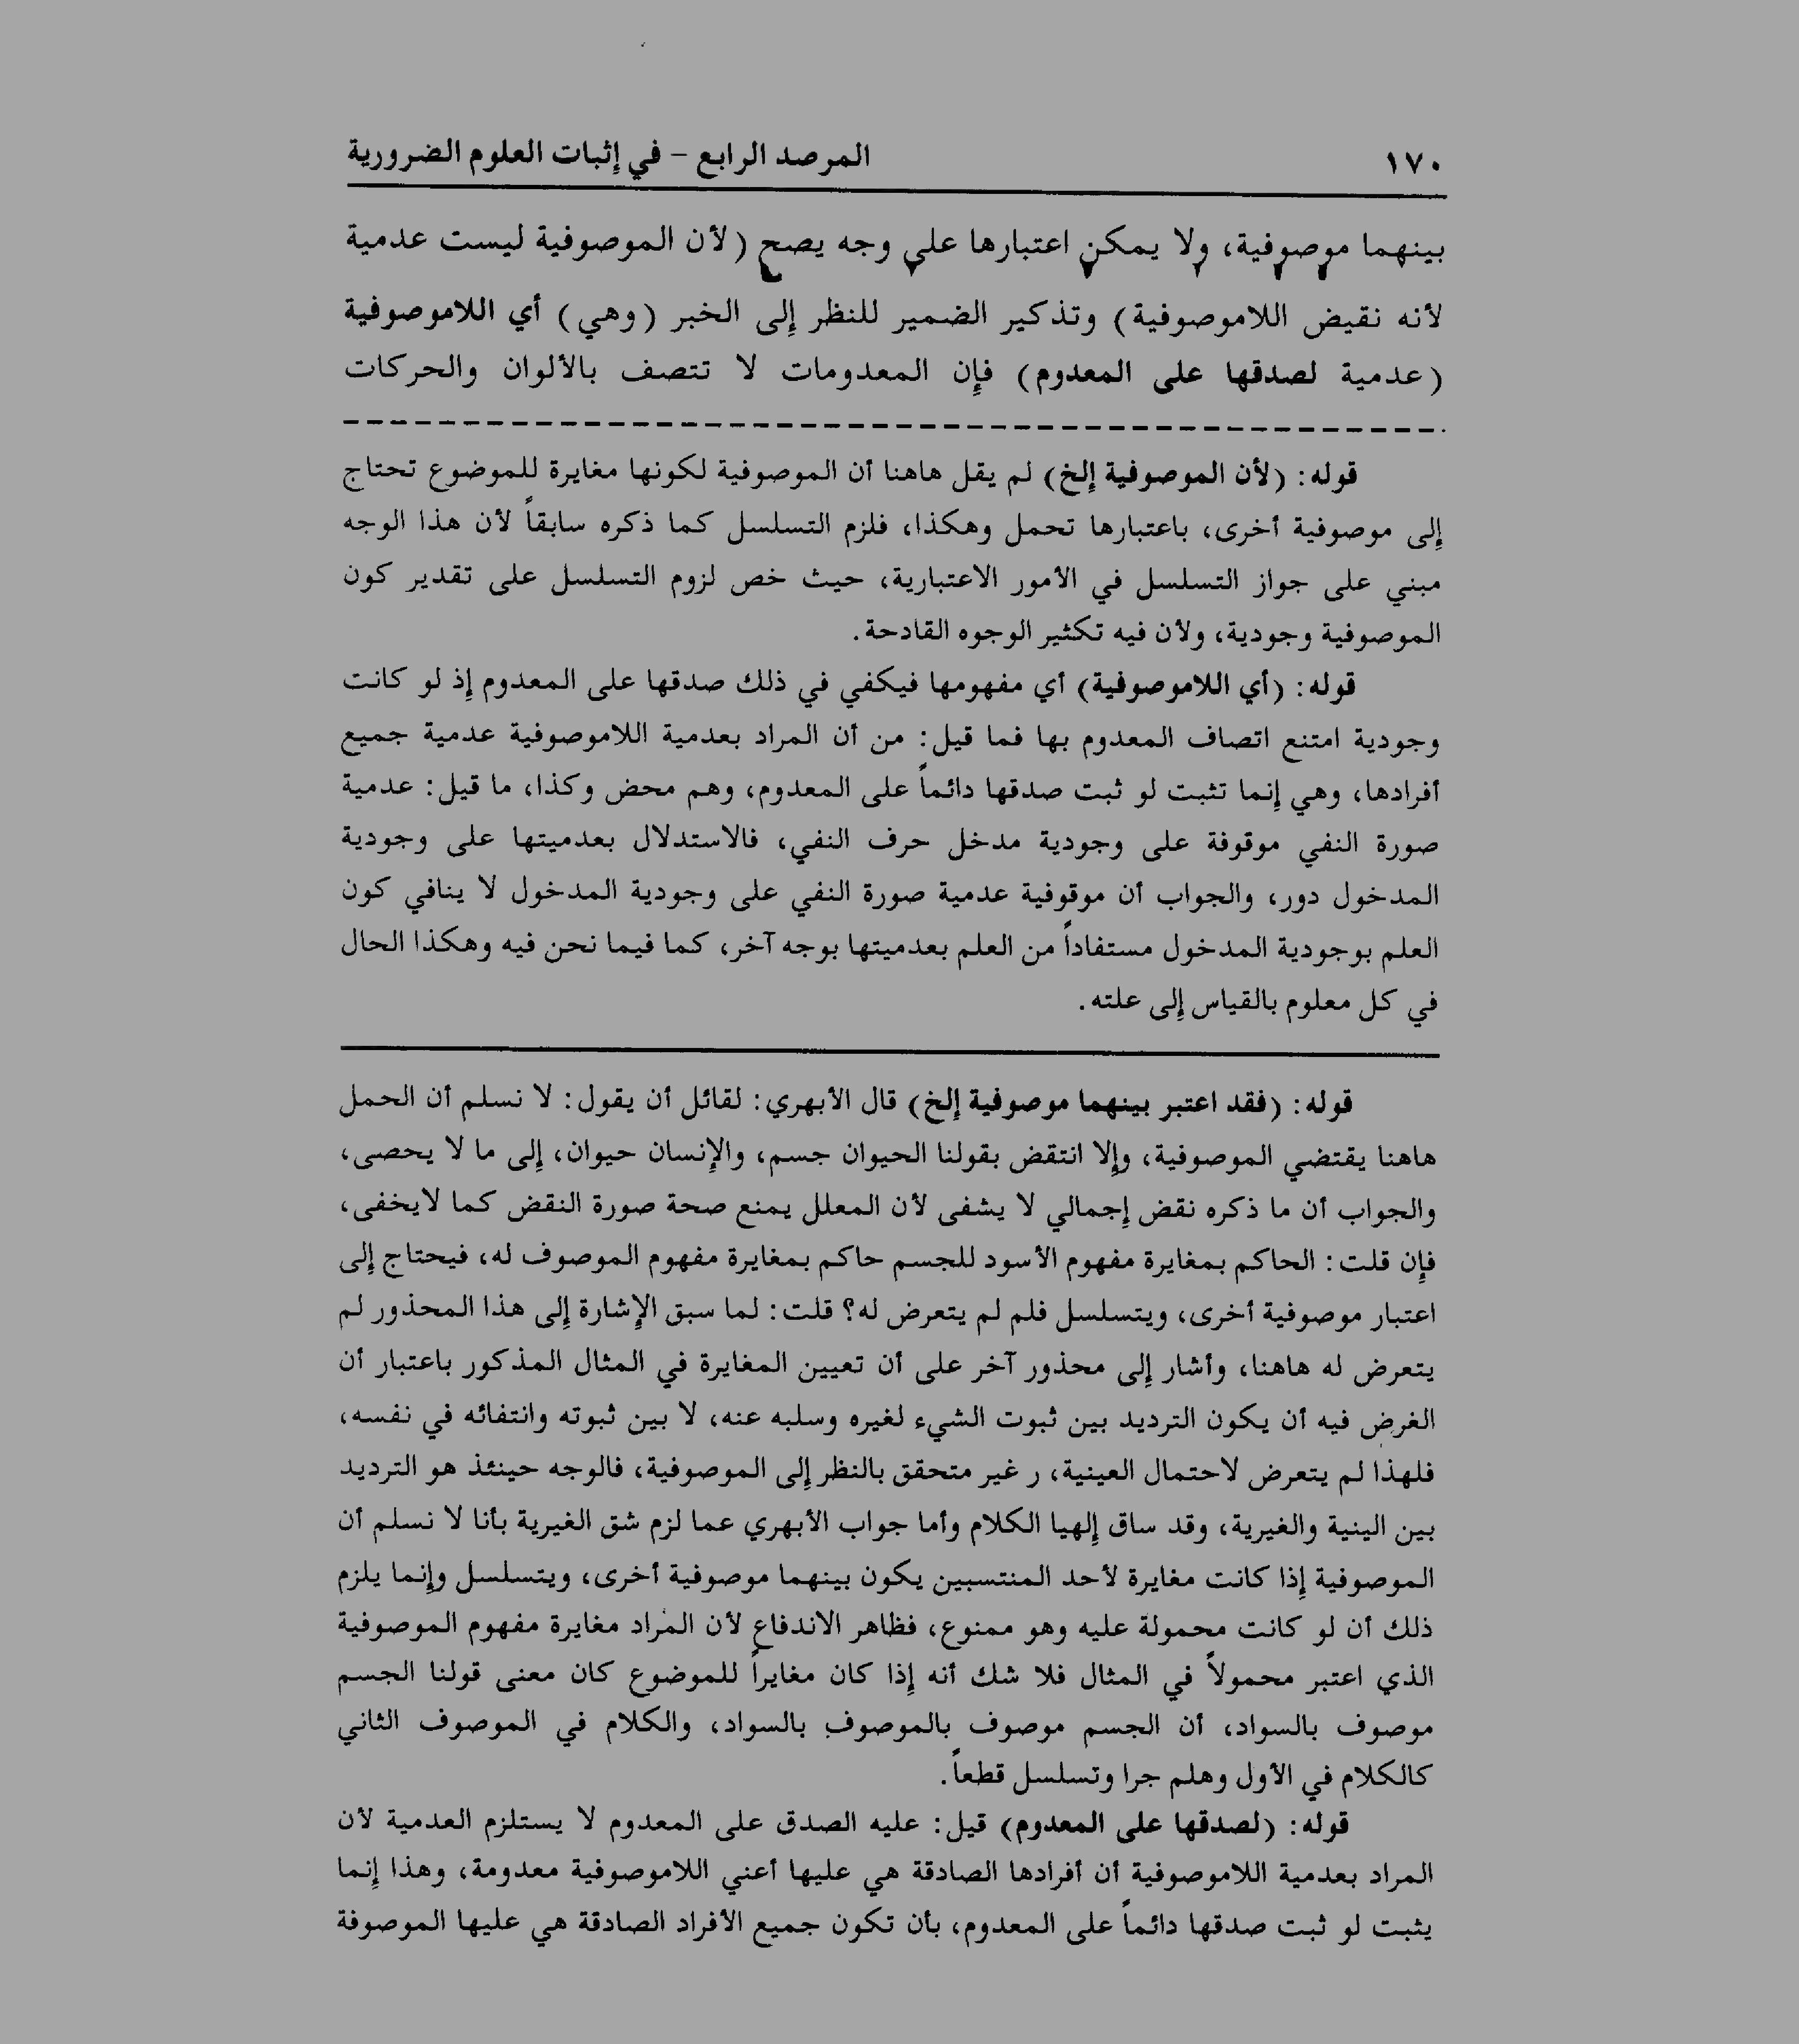 ١٧٠
المرصد الرابع – في إثبات العلوم الضرورية
بينهما موصوفية، ولا يمكن اعتبارها على وجه يصح (لأن الموصوفية ليست عدمية
لأنه نقيض اللاموصوفية) وتذكير الضمير للنظر إلى الخبر (وهي) أي اللاموصوفية
(عدمية لصدقها على المعدوم) فإن المعدومات لا تتصف بالألوان والحركات
قوله: (لأن الموصوفية إلخ) لم يقل هاهنا أن الموصوفية لكونها مغايرة للموضوع تحتاج
إلى موصوفية أخرى، باعتبارها تحمل وهكذا، فلزم التسلسل كما ذكره سابقاً لأن هذا الوجه
مبني على جواز التسلسل في الأمور الاعتبارية، حيث خص لزوم التسلسل على تقدير كون
الموصوفية وجودية، ولأن فيه تكثير الوجوه القادحة.
قوله: (أي اللاموصوفية) أي مفهومها فيكفي في ذلك صدقها على المعدوم إذ لو كانت
وجودية امتنع اتصاف المعدوم بها فما قيل: من أن المراد بعدمية اللاموصوفية عدمية جميع
أفرادها، وهي إنما تثبت لو ثبت صدقها دائماً على المعدوم، وهم محض وكذا، ما قيل: عدمية
صورة النفي موقوفة على وجودية مدخل حرف النفي، فالاستدلال بعدميتها على وجودية
المدخول دور، والجواب أن موقوفية عدمية صورة النفي على وجودية المدخول لا ينافي كون
العلم بوجودية المدخول مستفاداً من العلم بعدميتها بوجه آخر، كما فيما نحن فيه وهكذا الحال
في كل معلوم بالقياس إلى علته.
قوله: (فقد اعتبر بينهما موصوفية إلخ) قال الأبهري: لقائل أن يقول: لا نسلم أن الحمل
هاهنا يقتضي الموصوفية، وإلا انتقض بقولنا الحيوان جسم، والإنسان حيوان، إلى ما لا يحصى،
والجواب أن ما ذكره نقض إجمالي لا يشفى لأن المعلل يمنع صحة صورة النقض كما لايخفى،
فإن قلت: الحاكم بمغايرة مفهوم الأسود للجسم حاكم بمغايرة مفهوم الموصوف له، فيحتاج إلى
اعتبار موصوفية أخرى، ويتسلسل فلم لم يتعرض له؟ قلت: لما سبق الإشارة إلى هذا المحذور لم
يتعرض له هاهنا، وأشار إلى محذور آخر على أن تعيين المغايرة في المثال المذكور باعتبار أن
الغرض فيه أن يكون الترديد بين ثبوت الشيء لغيره وسلبه عنه، لا بين ثبوته وانتفائه في نفسه،
فلهذا لم يتعرض لاحتمال العينية، ر غير متحقق بالنظر إلى الموصوفية، فالوجه حينئذ هو الترديد
بين الينية والغيرية، وقد ساق إلهيا الكلام وأما جواب الأبهري عما لزم شق الغيرية بأنا لا نسلم أن
الموصوفية إذا كانت مغايرة لأحد المنتسبين يكون بينهما موصوفية أخرى، ويتسلسل وإنما يلزم
ذلك أن لو كانت محمولة عليه وهو ممنوع، فظاهر الاندفاع لأن المراد مغايرة مفهوم الموصوفية
الذي اعتبر محمولاً في المثال فلا شك أنه إذا كان مغايراً للموضوع كان معنى قولنا الجسم
موصوف بالسواد، أن الجسم موصوف بالموصوف بالسواد، والكلام في الموصوف الثاني
كالكلام في الأول وهلم جرا وتسلسل قطعاً.
قوله: (لصدقها على المعدوم) قيل: عليه الصدق على المعدوم لا يستلزم العدمية لأن
المراد بعدمية اللاموصوفية أن أفرادها الصادقة هي عليها أعني اللاموصوفية معدومة، وهذا إنما
يثبت لو ثبت صدقها دائماً على المعدوم، بأن تكون جميع الأفراد الصادقة هي عليها الموصوفة